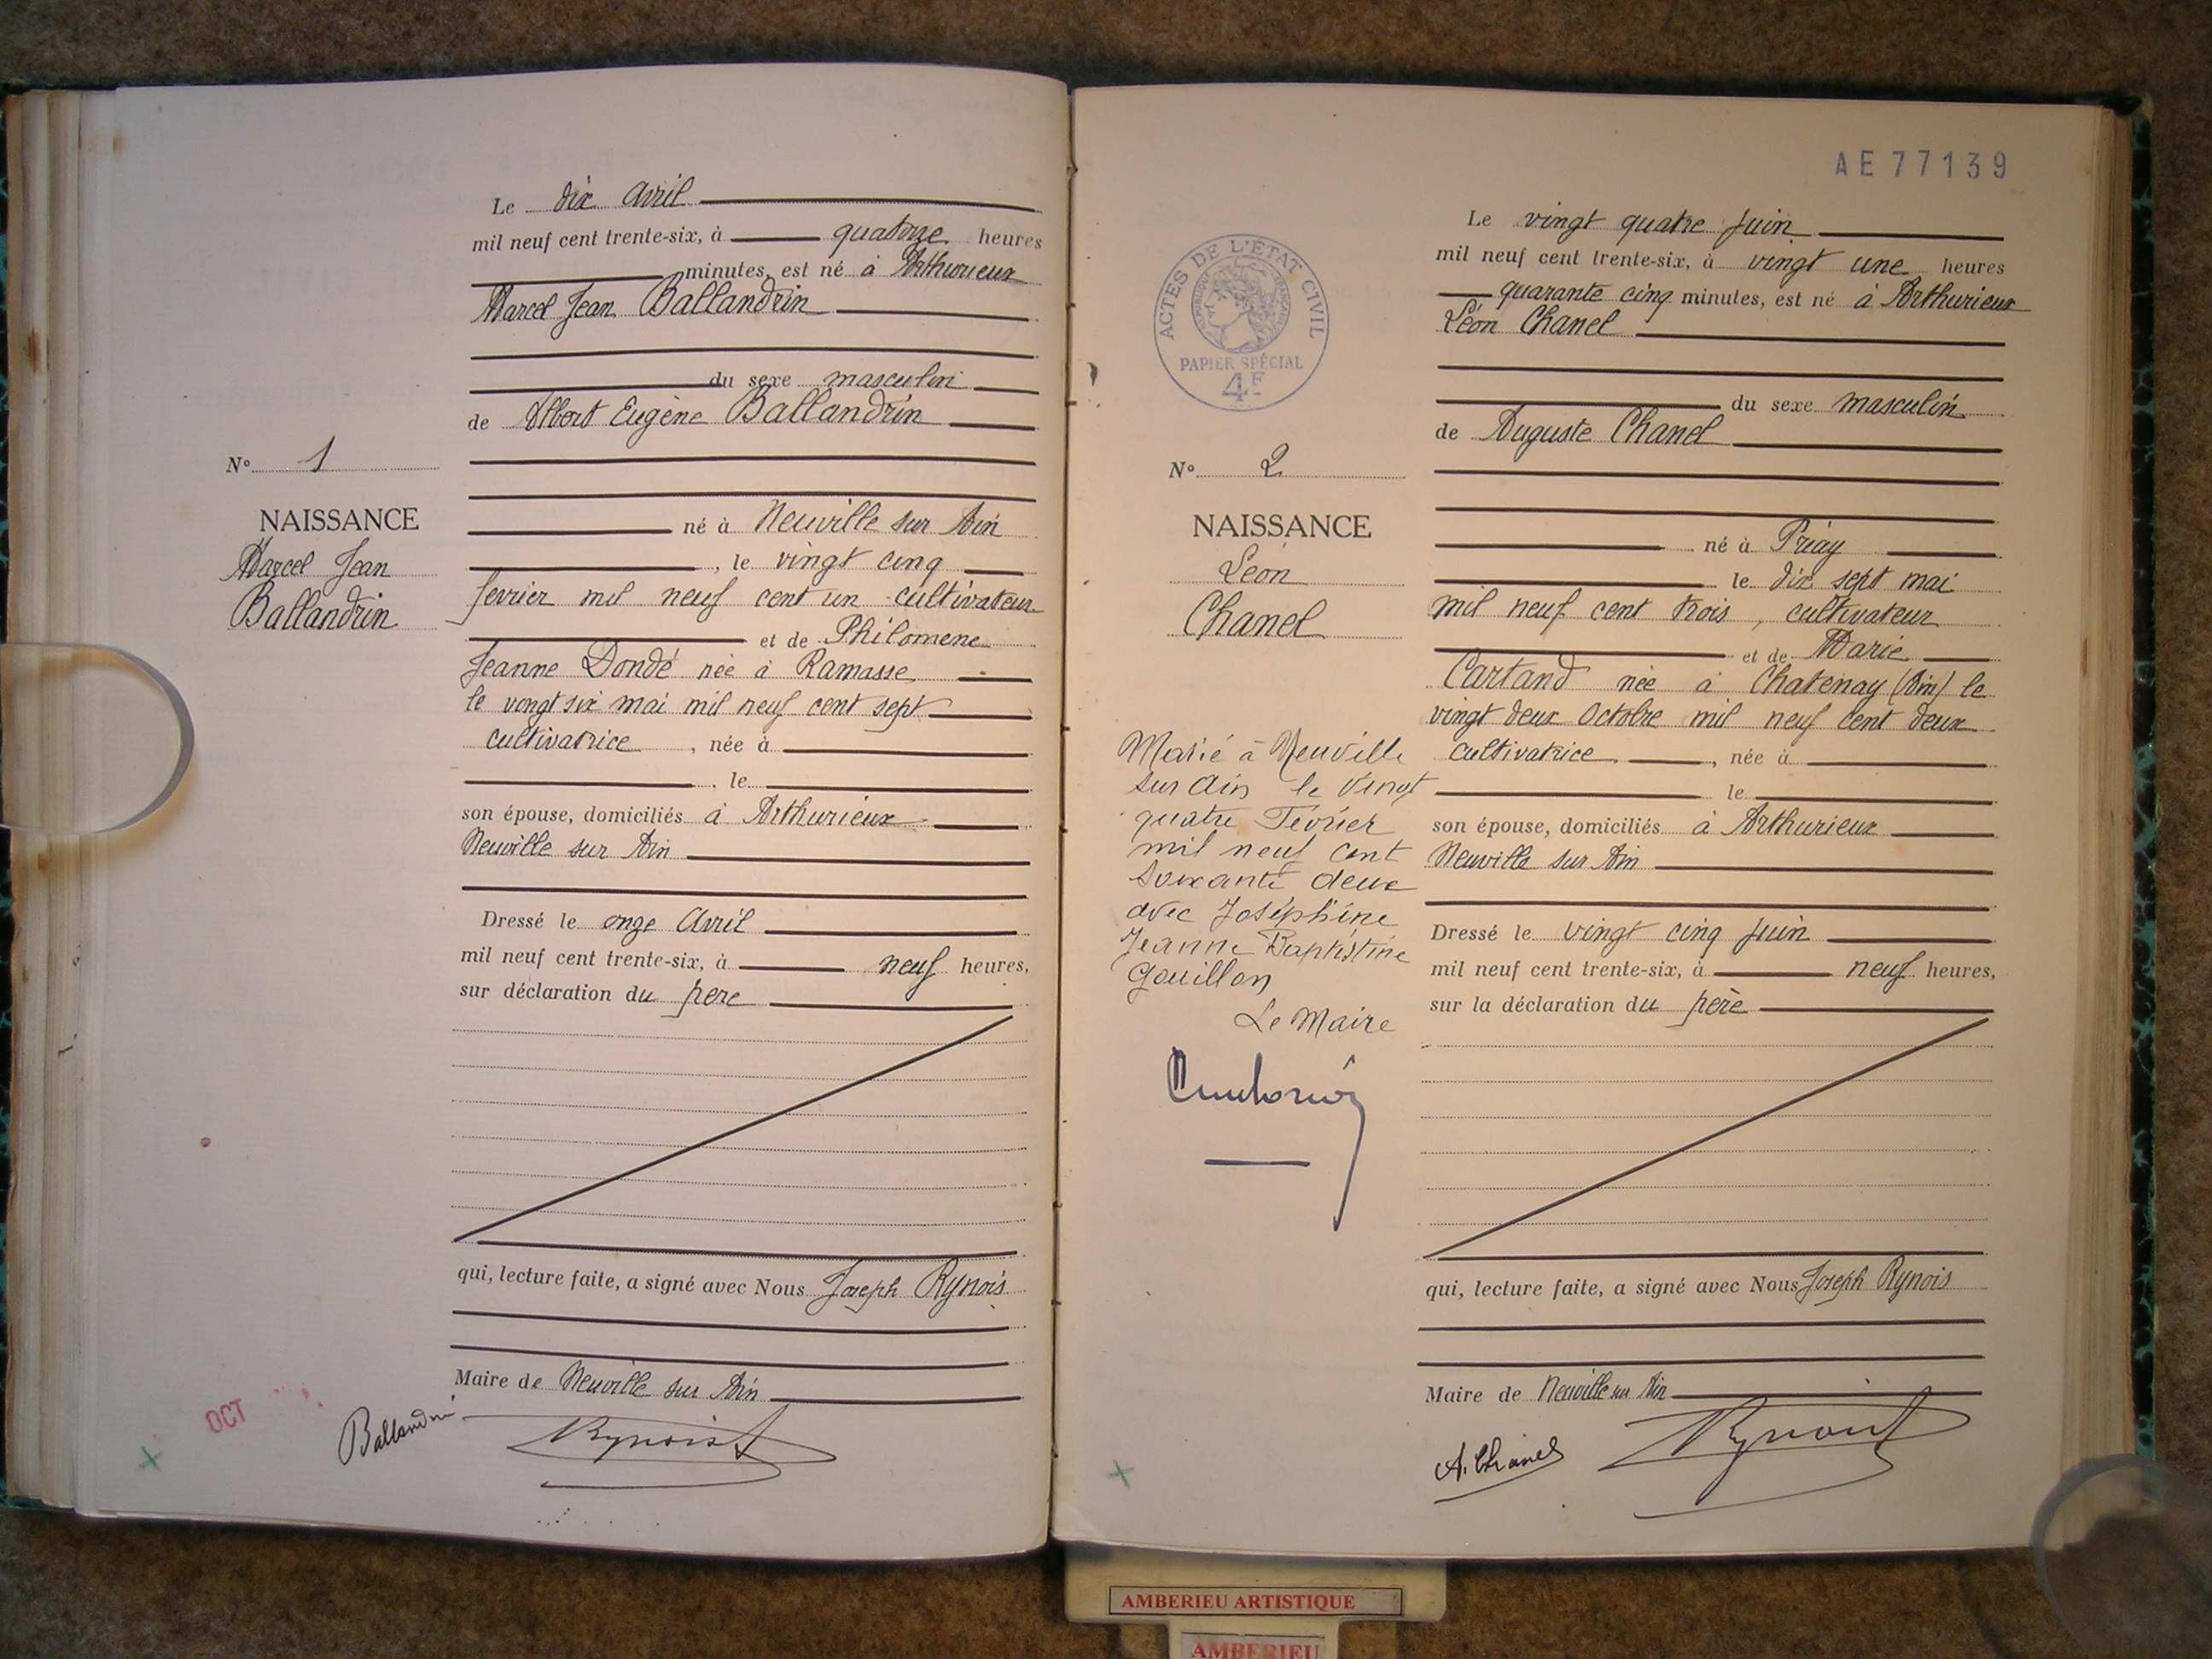 Le dix avril
mil neuf cent trente-six, à quatorze heures
minutes, est né à Arthurieux
Marcel Jean Ballandrin
du sexe masculin
de Albert Eugène Ballandrin
N° 1
NAISSANCE
Marcel Jean
Ballandrin
né à Neuville sur Ain
, le vingt cinq
février mil neuf cent un cultivateur
et de Philomene
Jeanne Dondé née à Ramasse
le vingt six mai mil neuf cent sept
cultivatrice , née à
, le
son épouse, domiciliés à Arthurieux
Neuville sur Ain
Dressé le onze Avril
mil neuf cent trente-six, à neuf heures,
sur déclaration du pere
qui, lecture faite, a signé avec Nous Joseph Rynois
Maire de Neuville sur Ain
OCT
Ballandrin
AE 77139
ACTES DE L'ÉTAT CIVIL
PAPIER SPÉCIAL
4F
Le vingt quatre Juin
mil neuf cent trente-six, à vingt une heures
quarante cinq minutes, est né à Arthurieux
Léon Chanel
du sexe masculin
de Auguste Chanel
N° 2
NAISSANCE
Léon
Chanel
né à Priay
le dix sept mai
mil neuf cent trois, cultivateur
et de Marie
Cartand née à Chatenay (Ain) le
vingt deux Octobre mil neuf cent deux
cultivatrice , née à
le
son épouse, domiciliés à Arthurieux
Neuville sur Ain
Marié à Neuville
sur Ain le Vingt
quatre Février
mil neuf cent
soixante deux
avec Joséphine
Jeanne Baptistine
Gouillon
Le Maire
Dressé le vingt cinq Juin
mil neuf cent trente-six, à neuf heures,
sur la déclaration du père
qui, lecture faite, a signé avec Nous Joseph Rynois
Maire de Neuville sur Ain
A. Chanel
AMBERIEU ARTISTIQUE
AMBERIEU